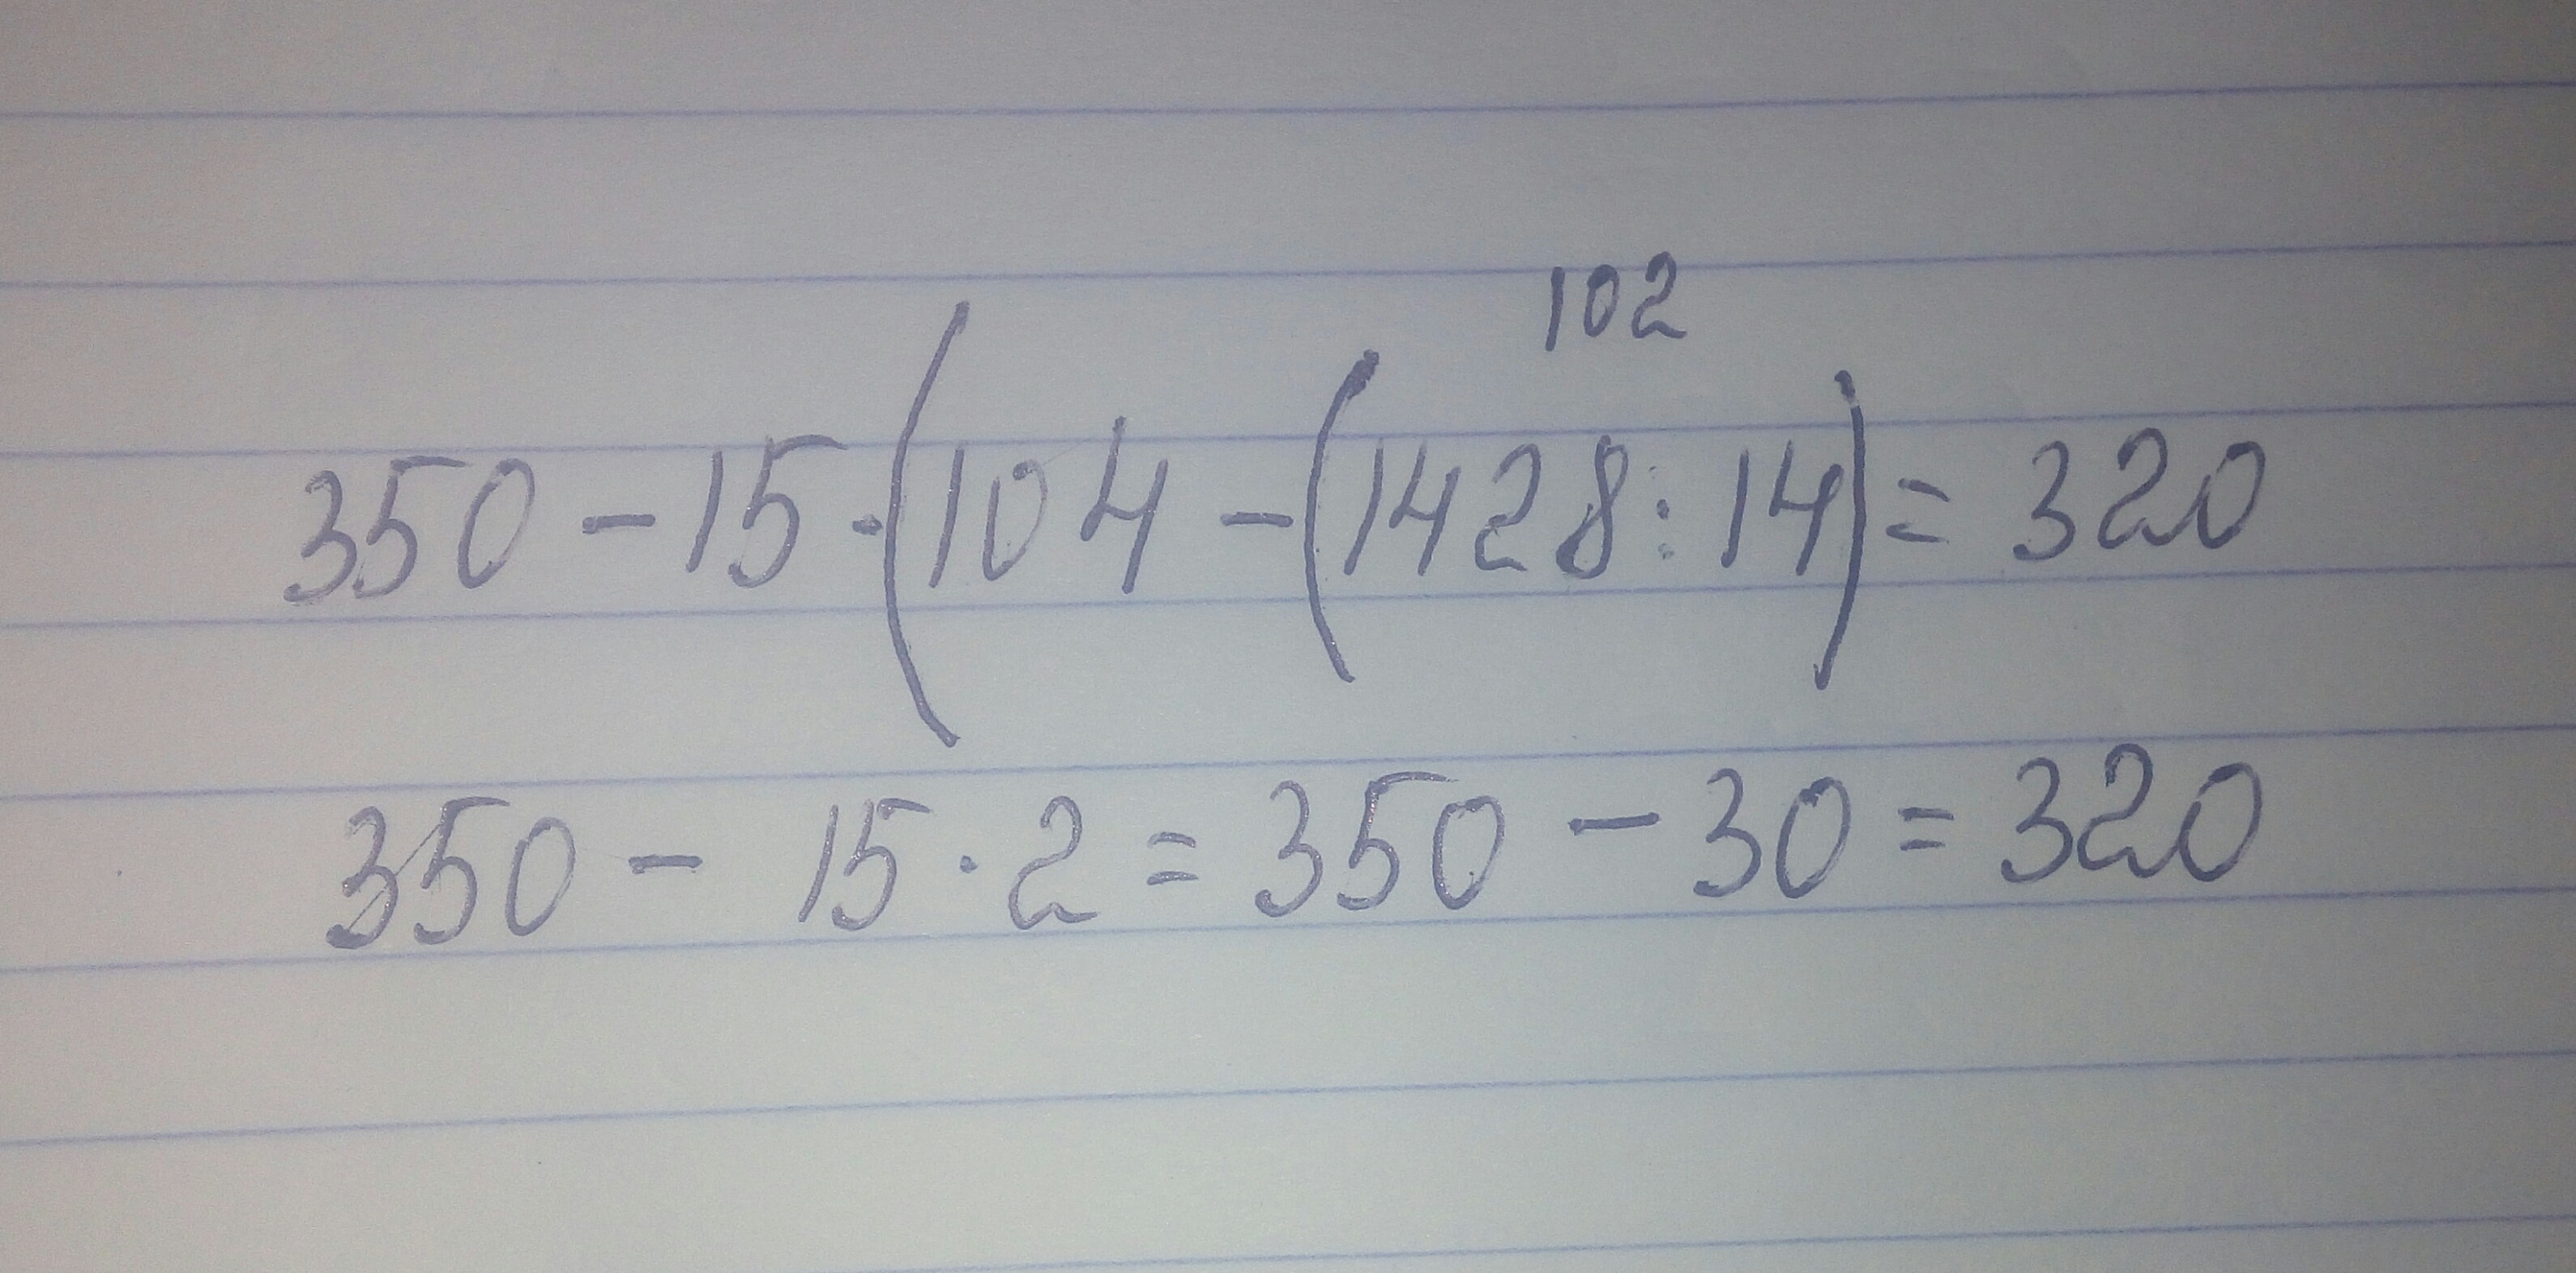 102
350 - 15 · (104 - (1428 : 14) = 320
350 - 15 · 2 = 350 - 30 = 320